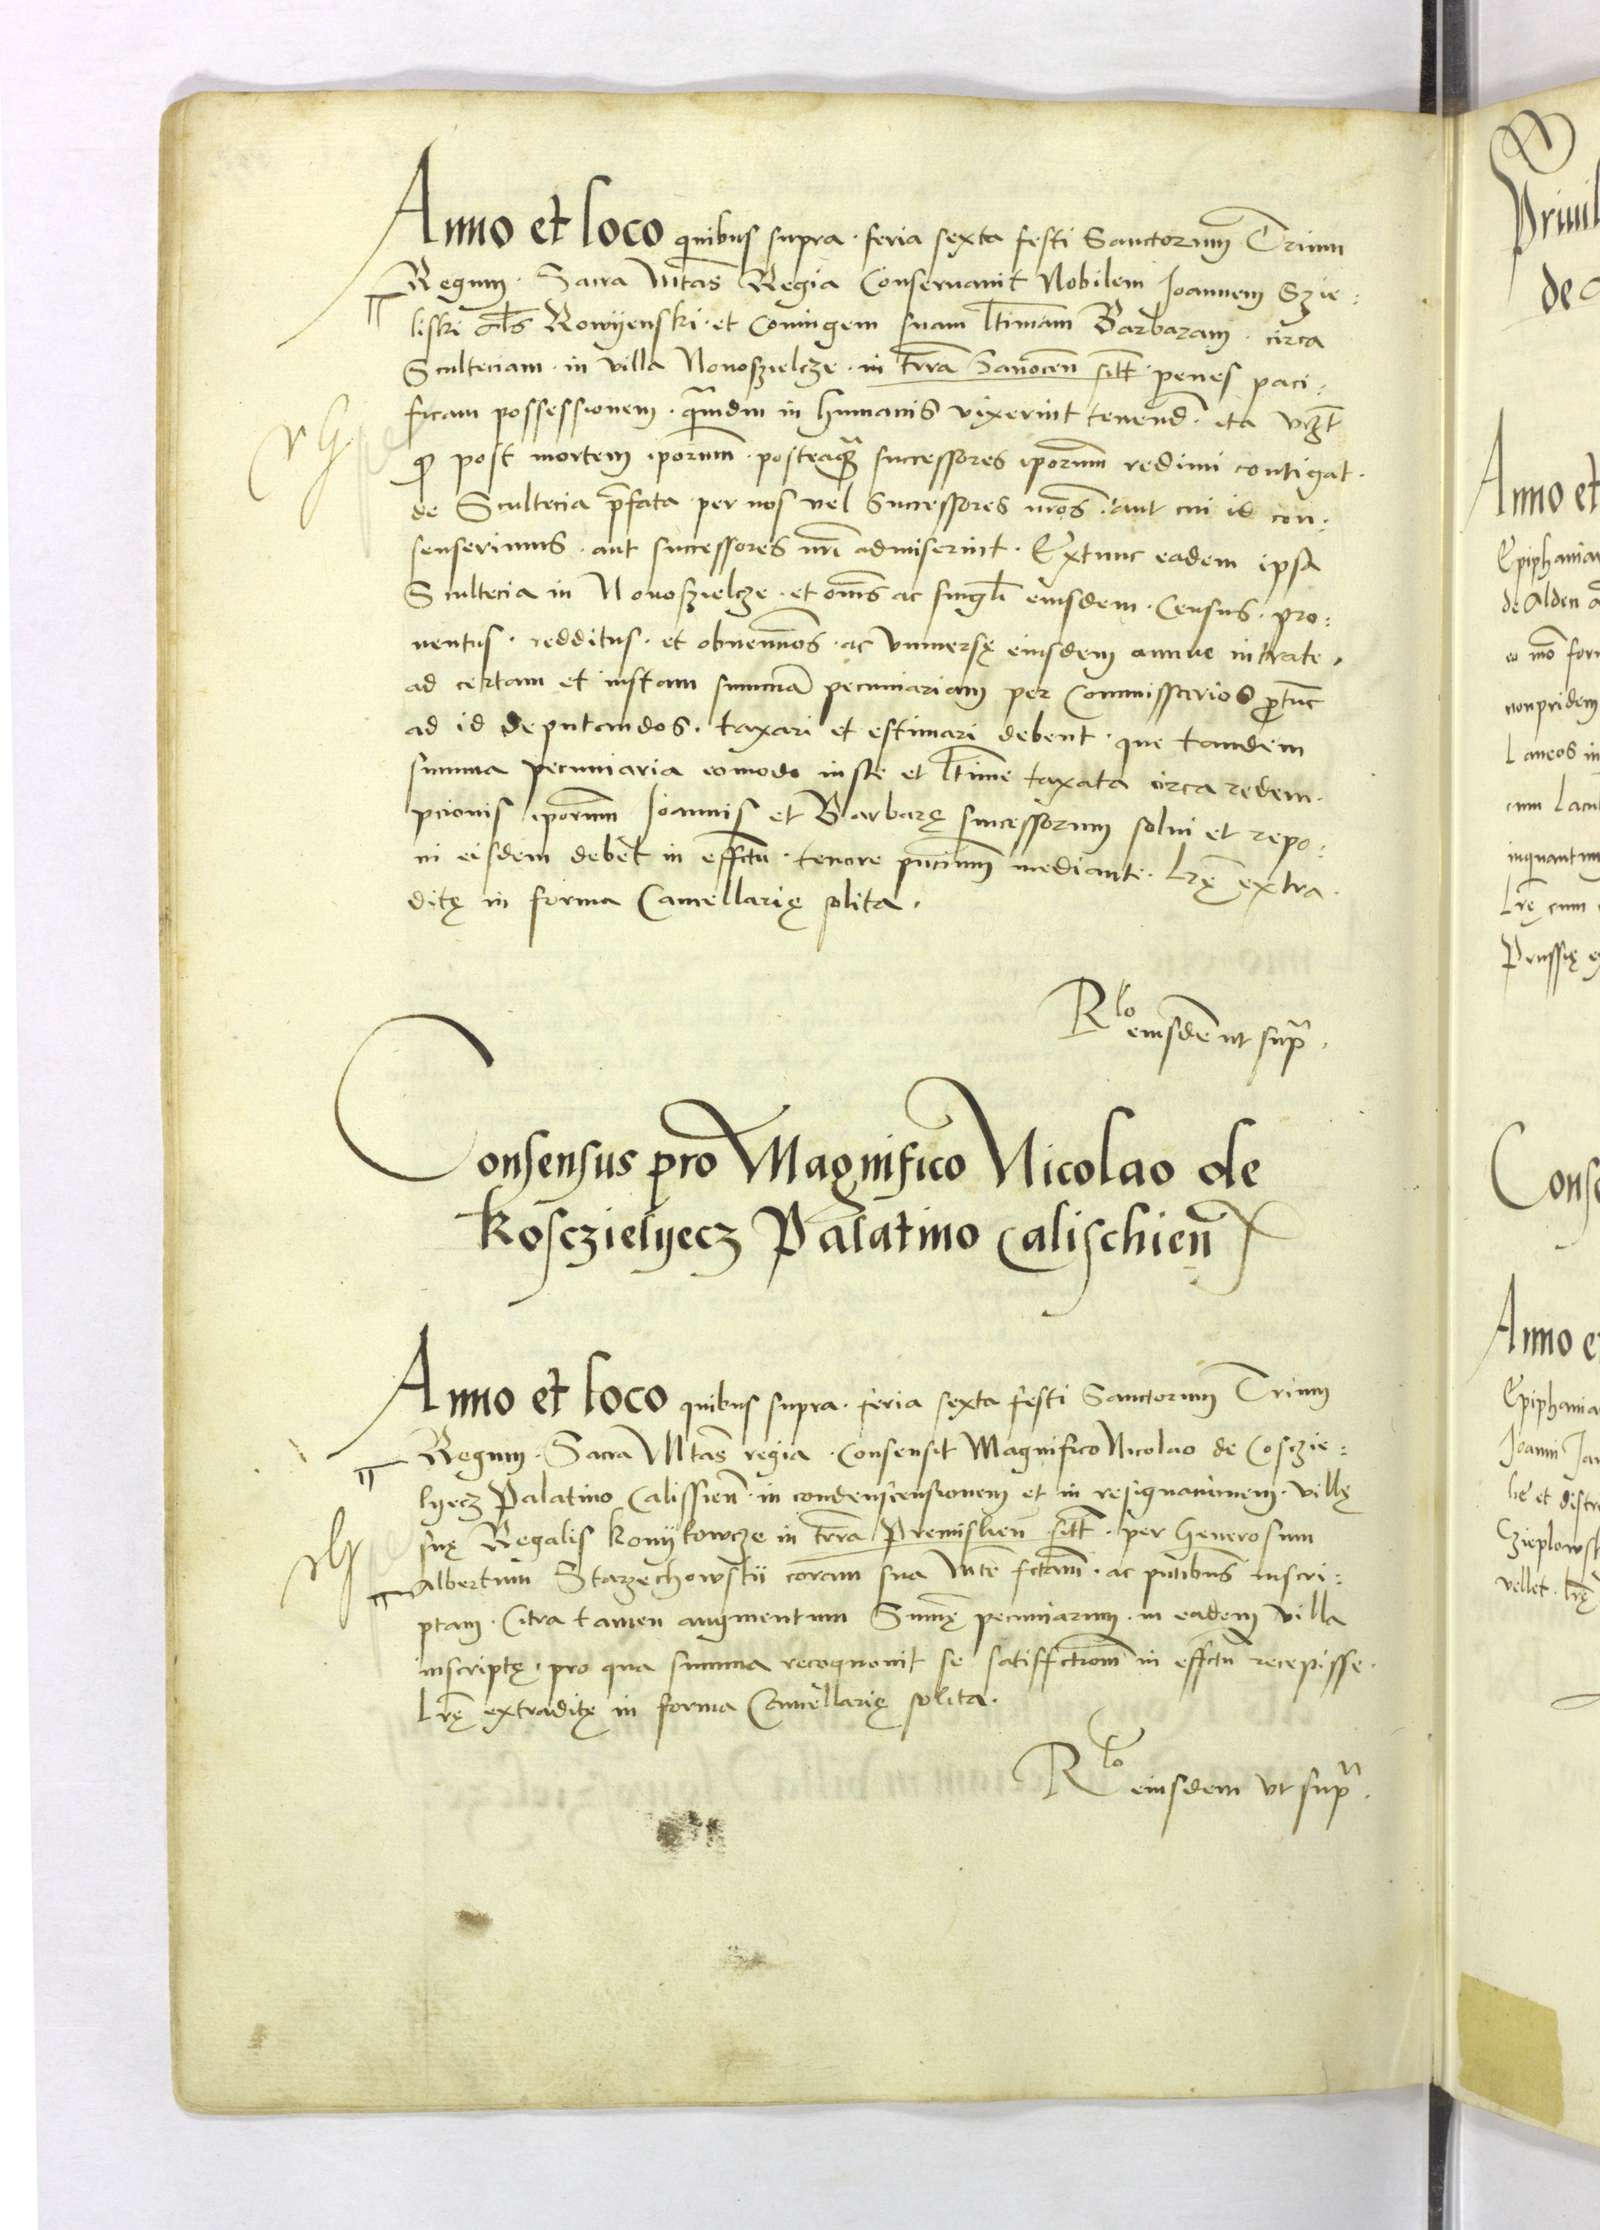 Anno et loco quibus supra · feria sexta festi Sanctorum Trium
Regum · Sacra Mtas Regia Conservavit Nobilem Joannem Szie:
liski als Rowyenski · et Coniugem suam ltimam Barbaram · circa
Sculteciam · in villa Novoszielcze · in trra Sanocen sitt · penes paci:
ficam possessionem · qmdiu in humanis vixerint tenend · ita vrzt
q post mortem iporum · posteaq successores iporum redimi contigat ·
de Scultecia prefata · per nos vel successores nros · aut cui id con:
senserimus · aut successores nri admiserint · Extunc eadem ipsa
Scultecia in Novoszielcze · et oms ac singli eiusdem · Census · pro:
ventus · redditus · et obvennos · ac universę eiusdem annue intrate ·
ad certam et iustam summa pecuniariam per Commissarios ptunc
ad id deputandos · taxari et estimari debent · que tandem
summa pecuniaria eomodo iuste et ltime taxata circa redem·
pcionis iporum Joannis et Barbarę successorum solvi et repo:
ni eisdem debet in effctu · tenore pntium mediante · Lrę extra·
ditę in forma Cancellarię solita ·
Rlo
eiusde ut supra ·
Consensus pro Magnifico Nicolao de
Kosczielyecz Palatino Calischien
Anno et loco quibus supra · feria sexta festi Sanctorum Trium
Regum · Sacra Mtas regia · Consensit Magnifico Nicolao de Cosczie:
lyecz Palatino Calissien · in condenscensionem et in resignacionem · villę
suę Regalis Konykowcze in trra Premislien sitt · per Generosum
Albertum Starzechowskii coram sua Mte fctam · ac pntibus inscri:
ptam · Citra tamen augmentum Summę pecuniarum · in eadem villa
inscriptę · pro qua summa recognovit se satisfctionem in effctu recepisse ·
Lrę extraditę in forma Cancellarię solita ·
Rlo
eiusdem ut supra ·
Privil
de
Anno et
Epiphania
de Alden
nonpridem
Laneos in
cum
inquantum
Lrę cum
Prussię
Conse
Anno e
Epiphania
Joanni Jan
et distr
Czieplowsk
vellet · Lrę